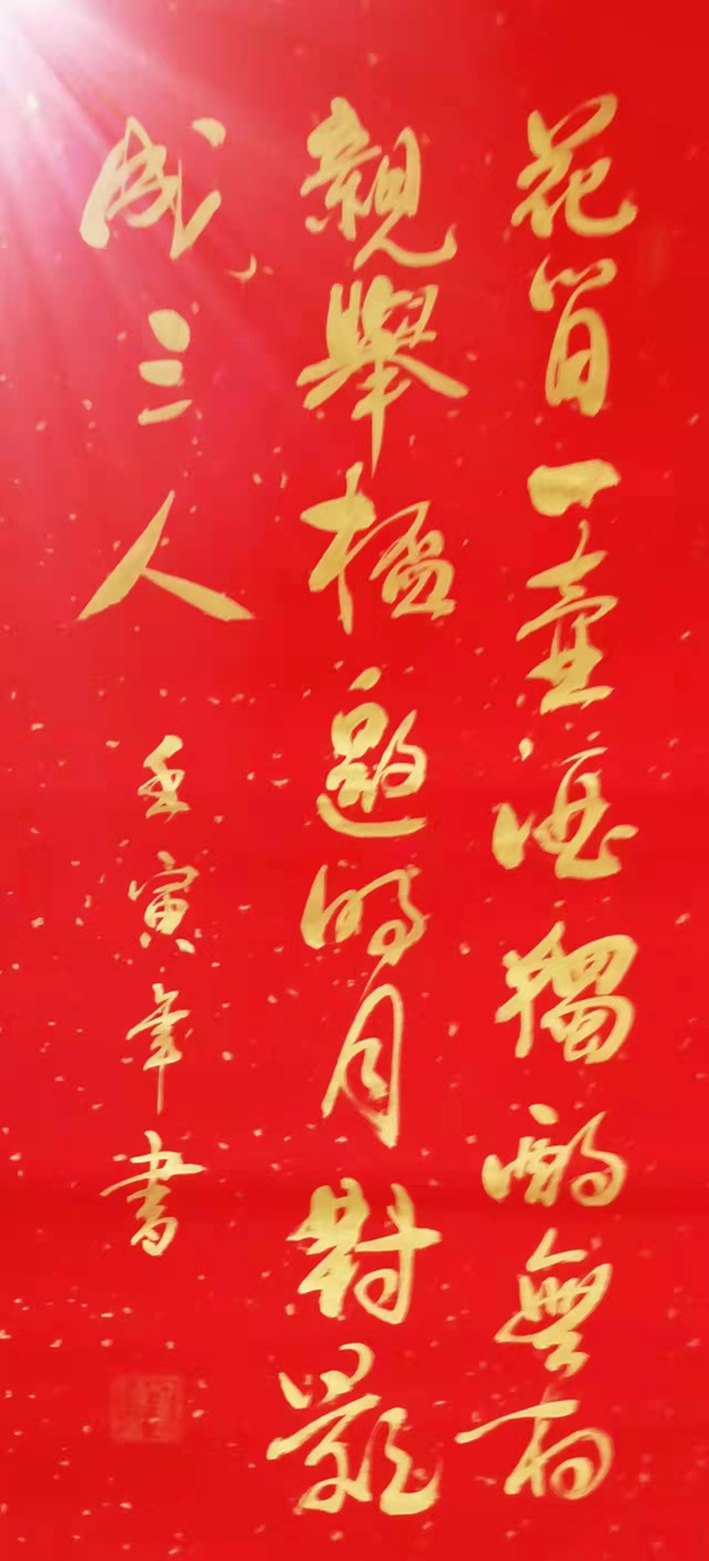 花間一壺酒獨酌無相
親舉杯邀明月對影
成三人
壬寅年書